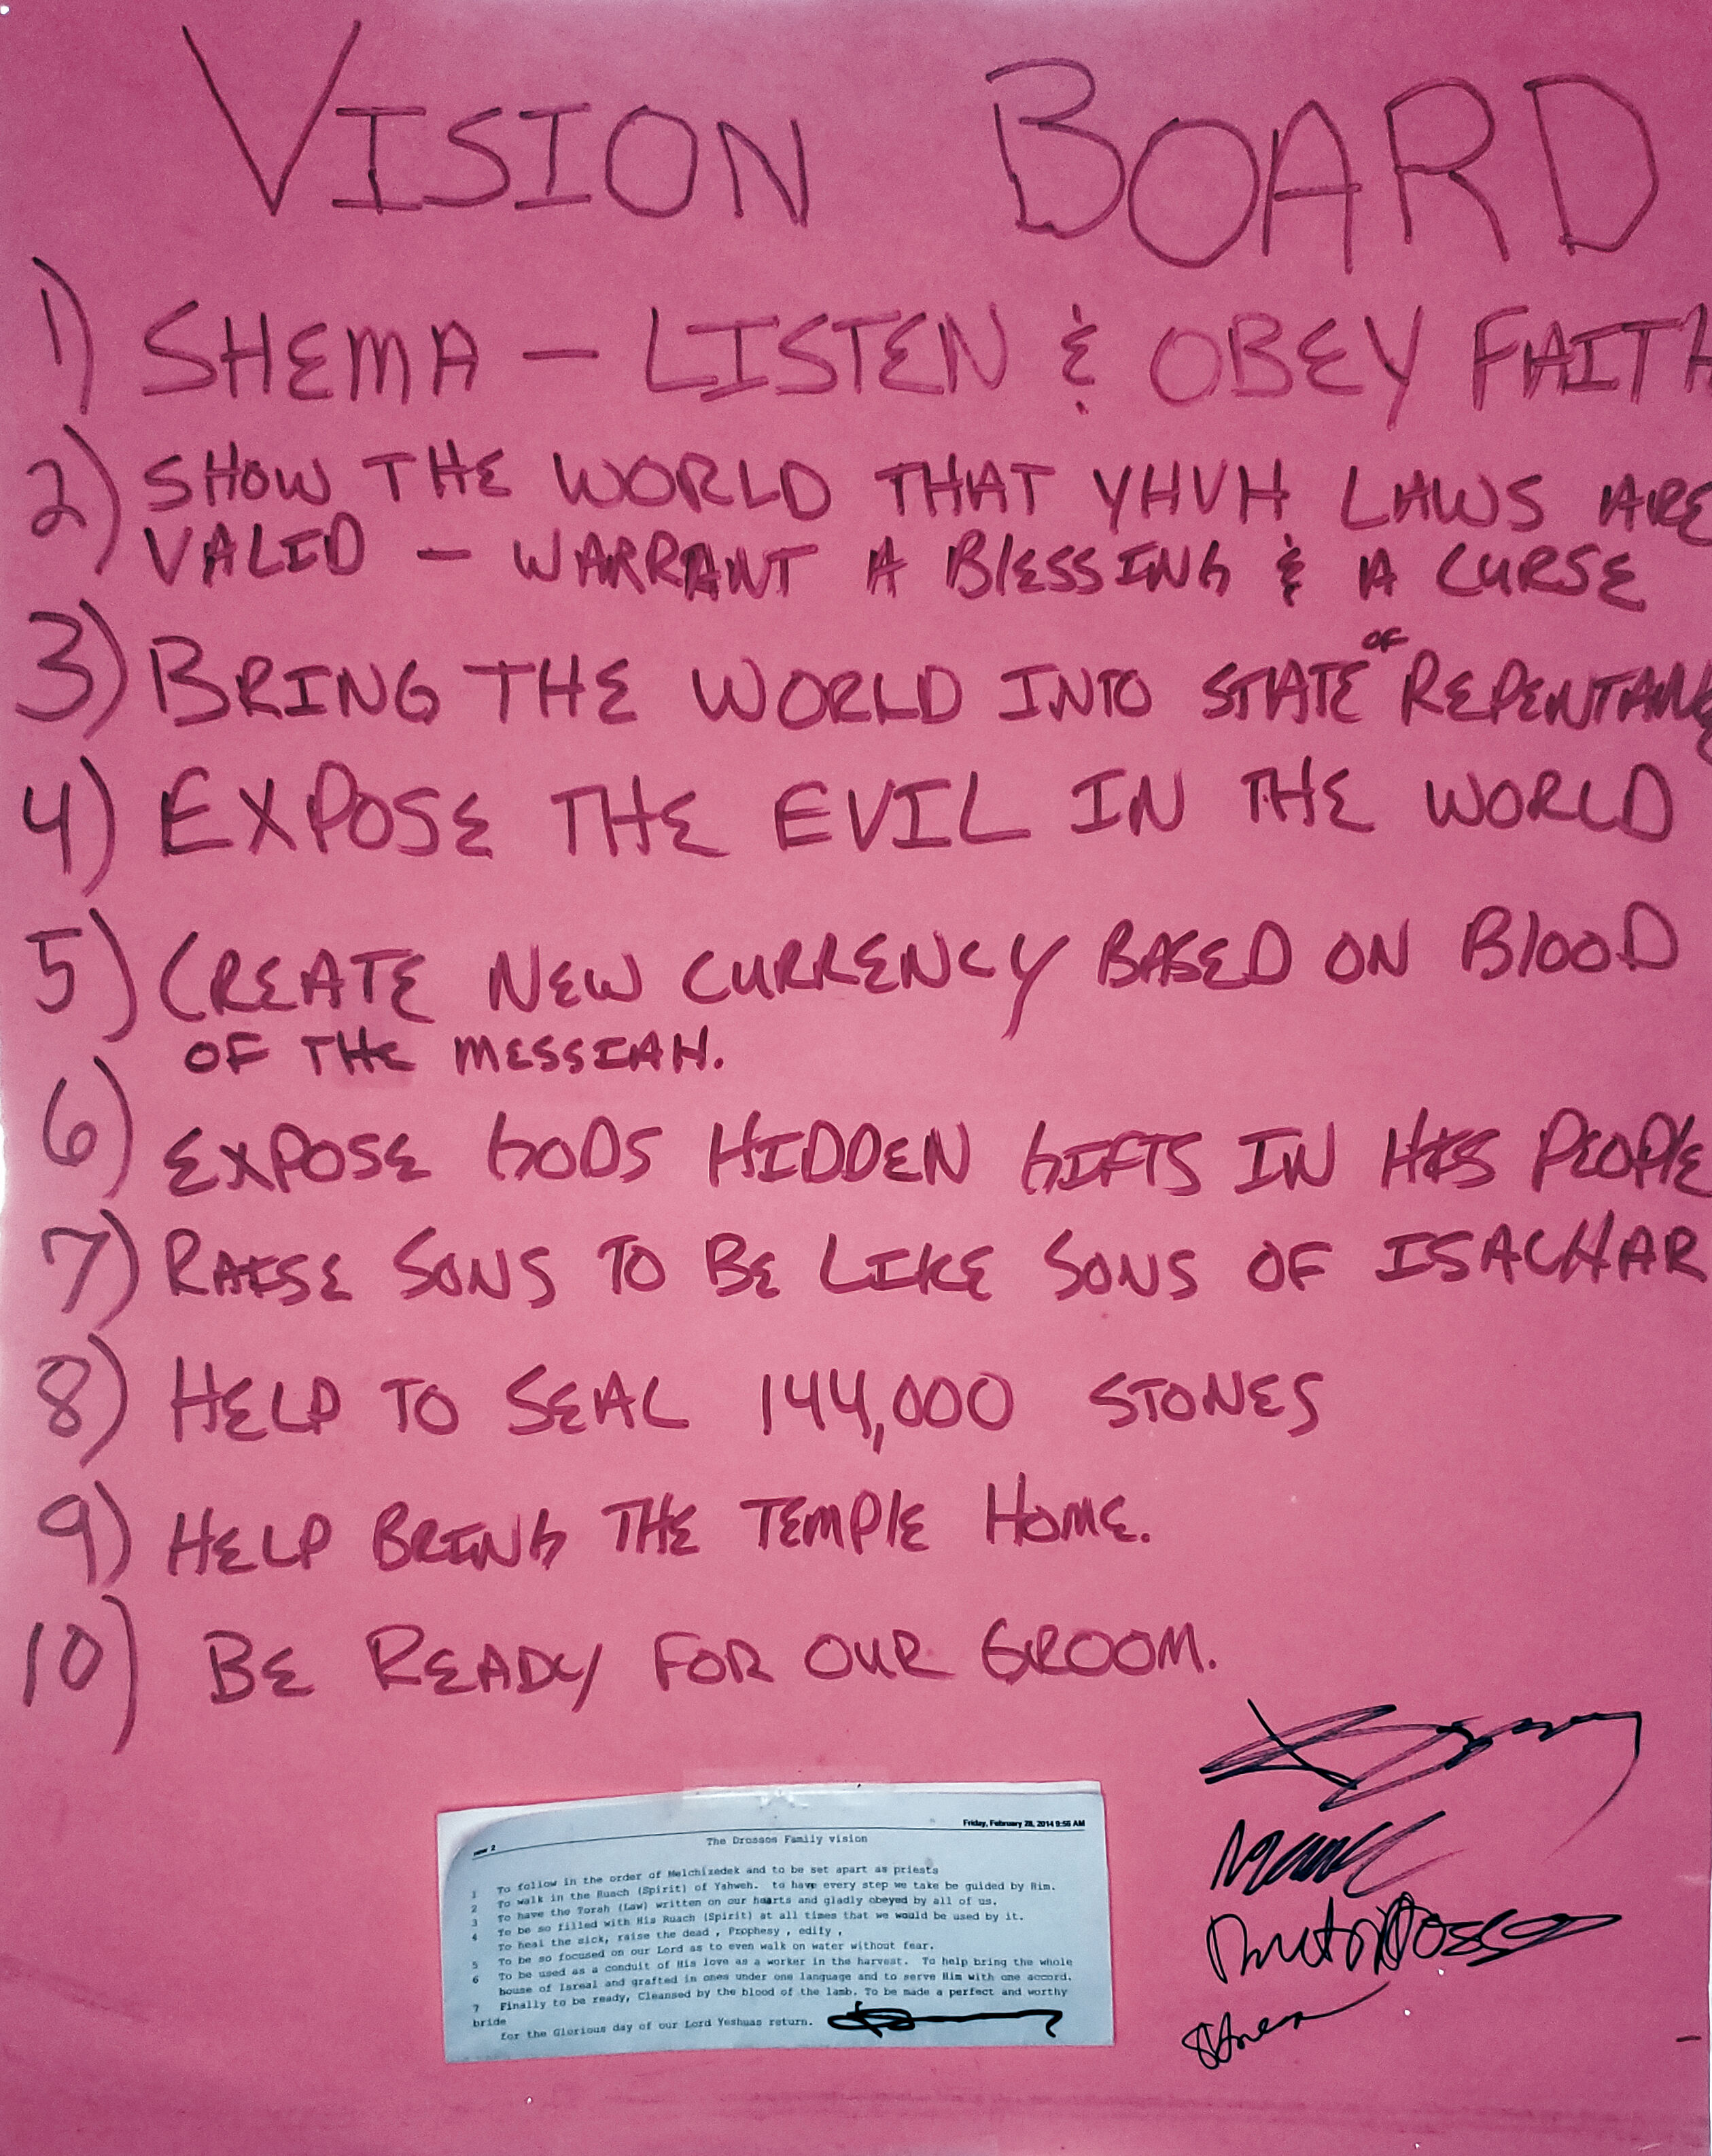 VISION BOARD
1) SHEMA – LISTEN & OBEY FAITH
2) SHOW THE WORLD THAT YHVH LAWS ARE
VALID – WARRANT A BlESSING & A CURSE
3) BRING THE WORLD INTO STATE OF REPENTANC
4) EXPOSE THE EVIL IN THE WORLD
5) CREATE NEW CURRENCY BASED ON BlOOD
OF THE MESSIAH.
6) EXPOSE GODS HIDDEN GIFTS IN HIS PEOPlE
7) RAISE SONS TO BE LIKE SONS OF ISACHAR
8) HELP TO SEAL 144,000 STONES
9) HELP BRING THE TEMPlE HOME.
10) BE READY FOR OUR GROOM.
Friday, February 28, 2014 9:56 AM
The Drossos Family vision
To follow in the order of Melchizedek and to be set apart as priests
1 To walk in the Ruach (Spirit) of Yahweh. to have every step we take be guided by Him.
2 To have the Torah (Law) written on our hearts and gladly obeyed by all of us.
3 To be so filled with His Ruach (Spirit) at all times that we would be used by it.
4 To heal the sick, raise the dead , Prophesy , edify ,
5 To be so focused on our Lord as to even walk on water without fear.
6 To be used as a conduit of His love as a worker in the harvest. To help bring the whole
house of Isreal and grafted in ones under one language and to serve Him with one accord.
7 Finally to be ready, Cleansed by the blood of the lamb. To be made a perfect and worthy
bride
for the Glorious day of our Lord Yeshuas return.